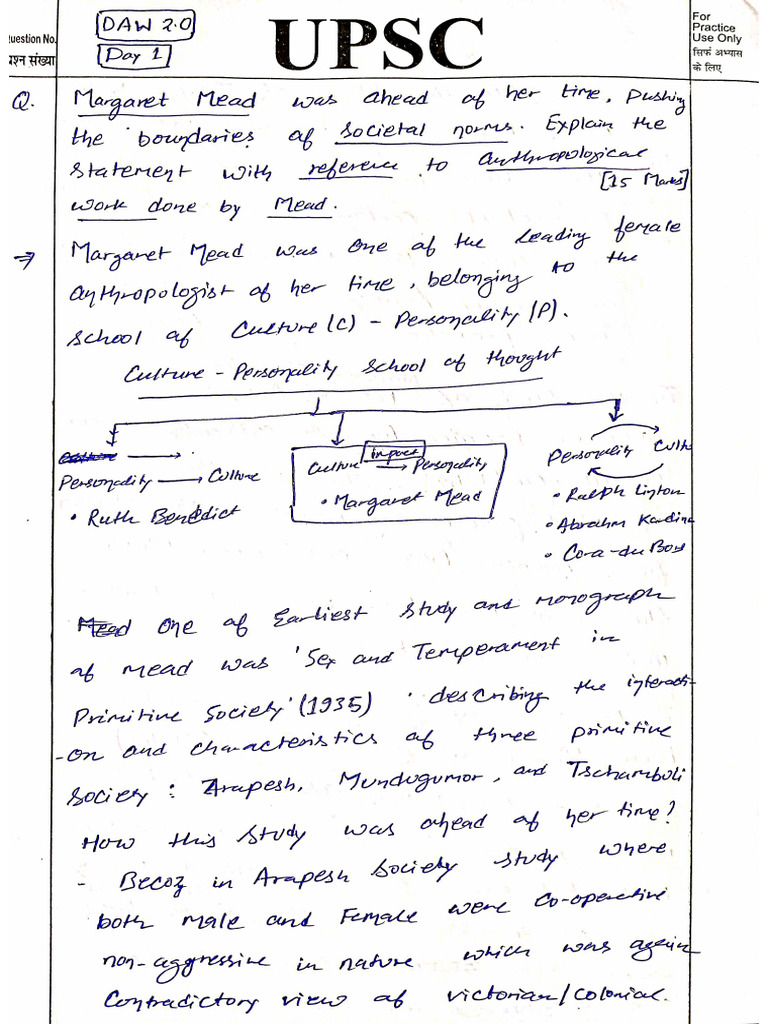 DAW 2.0
Day 1
Question No.
प्रश्न संख्या
UPSC
For
Practice
Use Only
सिर्फ अभ्यास
के लिए
Q. Margaret Mead was ahead of her time, pushing
the boundaries of societal norms. Explain the
statement with reference to anthropological
work done by Mead. [15 Marks]
⇒ Margaret Mead was one of the leading female
anthropologist of her time, belonging to the
school of Culture (C) - Personality (P).
Culture - Personality School of thought
Culture →
Personality → Culture
• Ruth Benedict
Culture impact → Personality
• Margaret Mead
Personality Cultu
• Ralph Linton
• Abrahm Kardine
• Cora-du Bois
Mead One of Earliest study and monograph
of mead was 'Sex and Temperament in
Primitive Society' (1935) describing the interacti-
-on and characteristics of three primitive
society : Arapesh, Mundugumor, and Tschambuli
How this study was ahead of her time?
- Becoz in Arapesh Society study where
both male and Female were co-operative
non-aggressive in nature which was again
contradictory view of victorian/colonial.